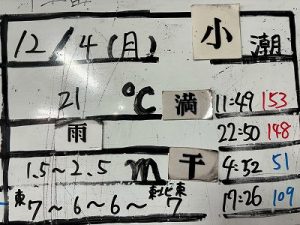 12/4(月) 小潮
21℃ 満 11:49 153
雨 22:50 148
1.5~2.5m 干 4:32 51
東7~6~6~東北東7 17:26 109